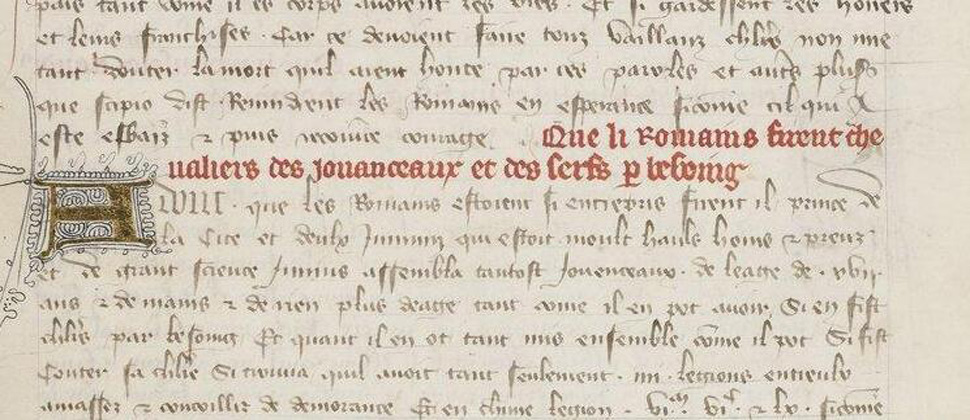 pais tant come il es corps auoient les vies. Et si gardessent les honeurs
et leurs franchises. Car ce deuoient faire touz vaillanz chlrs non mie
tant douter la mort quil aient honte par ces paroles et autres plus
que scipio dist. Reuindrent les Romains en esperance sicome cil qui
este esbaiz ⁊ puis recoiure corage. Que li Romains firent che
ualiers des jouanceaux et des serfs ꝑ besoing
que les Romains estoient si entrepris firent il prince de
la Cite et deulx Junium qui estoit moult hauls homs ⁊ preuz
et de grant science Junius assembla tantost jouenceaux. de leage de. xvii.
ans ⁊ de mains ⁊ de rien plus deage tant come il en pot auoir, Si en fist
chlrs par besoing Et quant il en ot tant mis ensemble come il pot Si fist
Conter sa chlie Si trouua quil auoit tant seulement. iiii. legions
amassez ⁊ concoilliz de demorance Et en chune legion. vi.ᵐ vi.ᶜ ⁊ lx. sicome